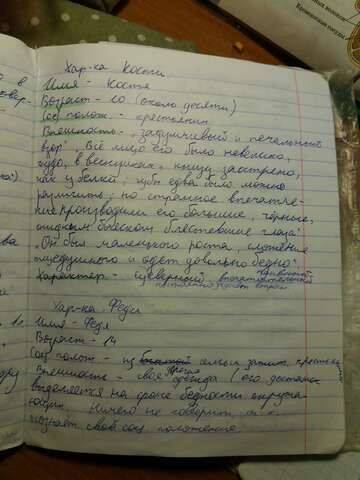 Хар-ка Кости
Имя - Костя
Возраст - 10 (около десяти)
Соц. полож. - крестьянин
Внешность - "задумчивый и печальный
взор" "Всё лицо его было невелико,
худо, в веснушках, книзу заострено,
как у белки; губы едва было можно
различить; но странное впечатле-
ние производили его большие, чёрные,
жидким блеском блестевшие глаза"
"Он был маленького роста, сложения
тщедушного и одет довольно бедно".
Характер - суеверный, впечатлительный
Хар-ка Феди
Имя - Федя
Возраст - 14
Соц. полож. - из семьи зажит. крестьян
Внешность - своя яркая одежда (его достаток
выделяется на фоне бедности окружа-
ющих. Ничего не говорит, а
знает своё соц. положение